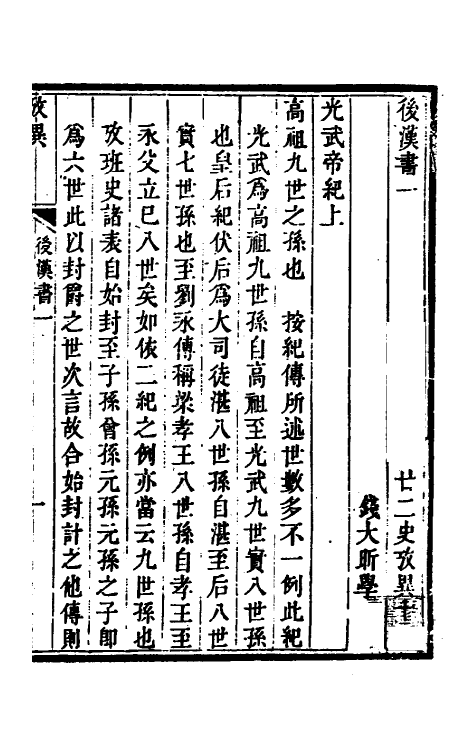 後漢書一　廿二史攷異十
錢大昕學
光武帝紀上
高祖九世之孫也　按紀傳所述世數多不一例此紀
光武爲高祖九世孫自高祖至光武九世實八世孫
也皇后紀伏后爲大司徒湛八世孫自湛至后八世
實七世孫也至劉永傳稱梁孝王八世孫自孝王至
永父立已八世矣如依二紀之例亦當云九世孫也
攷班史諸表自始封至子孫曾孫元孫元孫之子卽
爲六世此以封爵之世次言故合始封計之他傳則
攷異
後漢書一
一